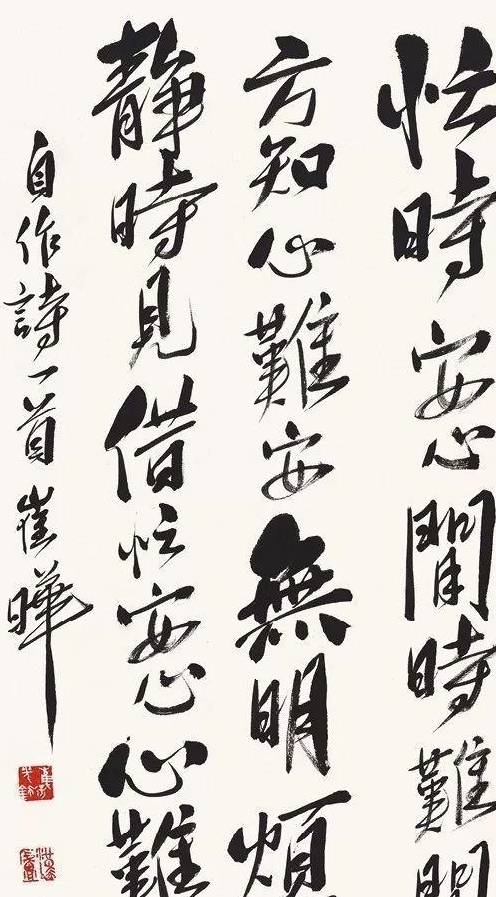 忙時安心閒時難
方知心難安無明煩
靜時見借忙安心心難
自作詩一首崔曄